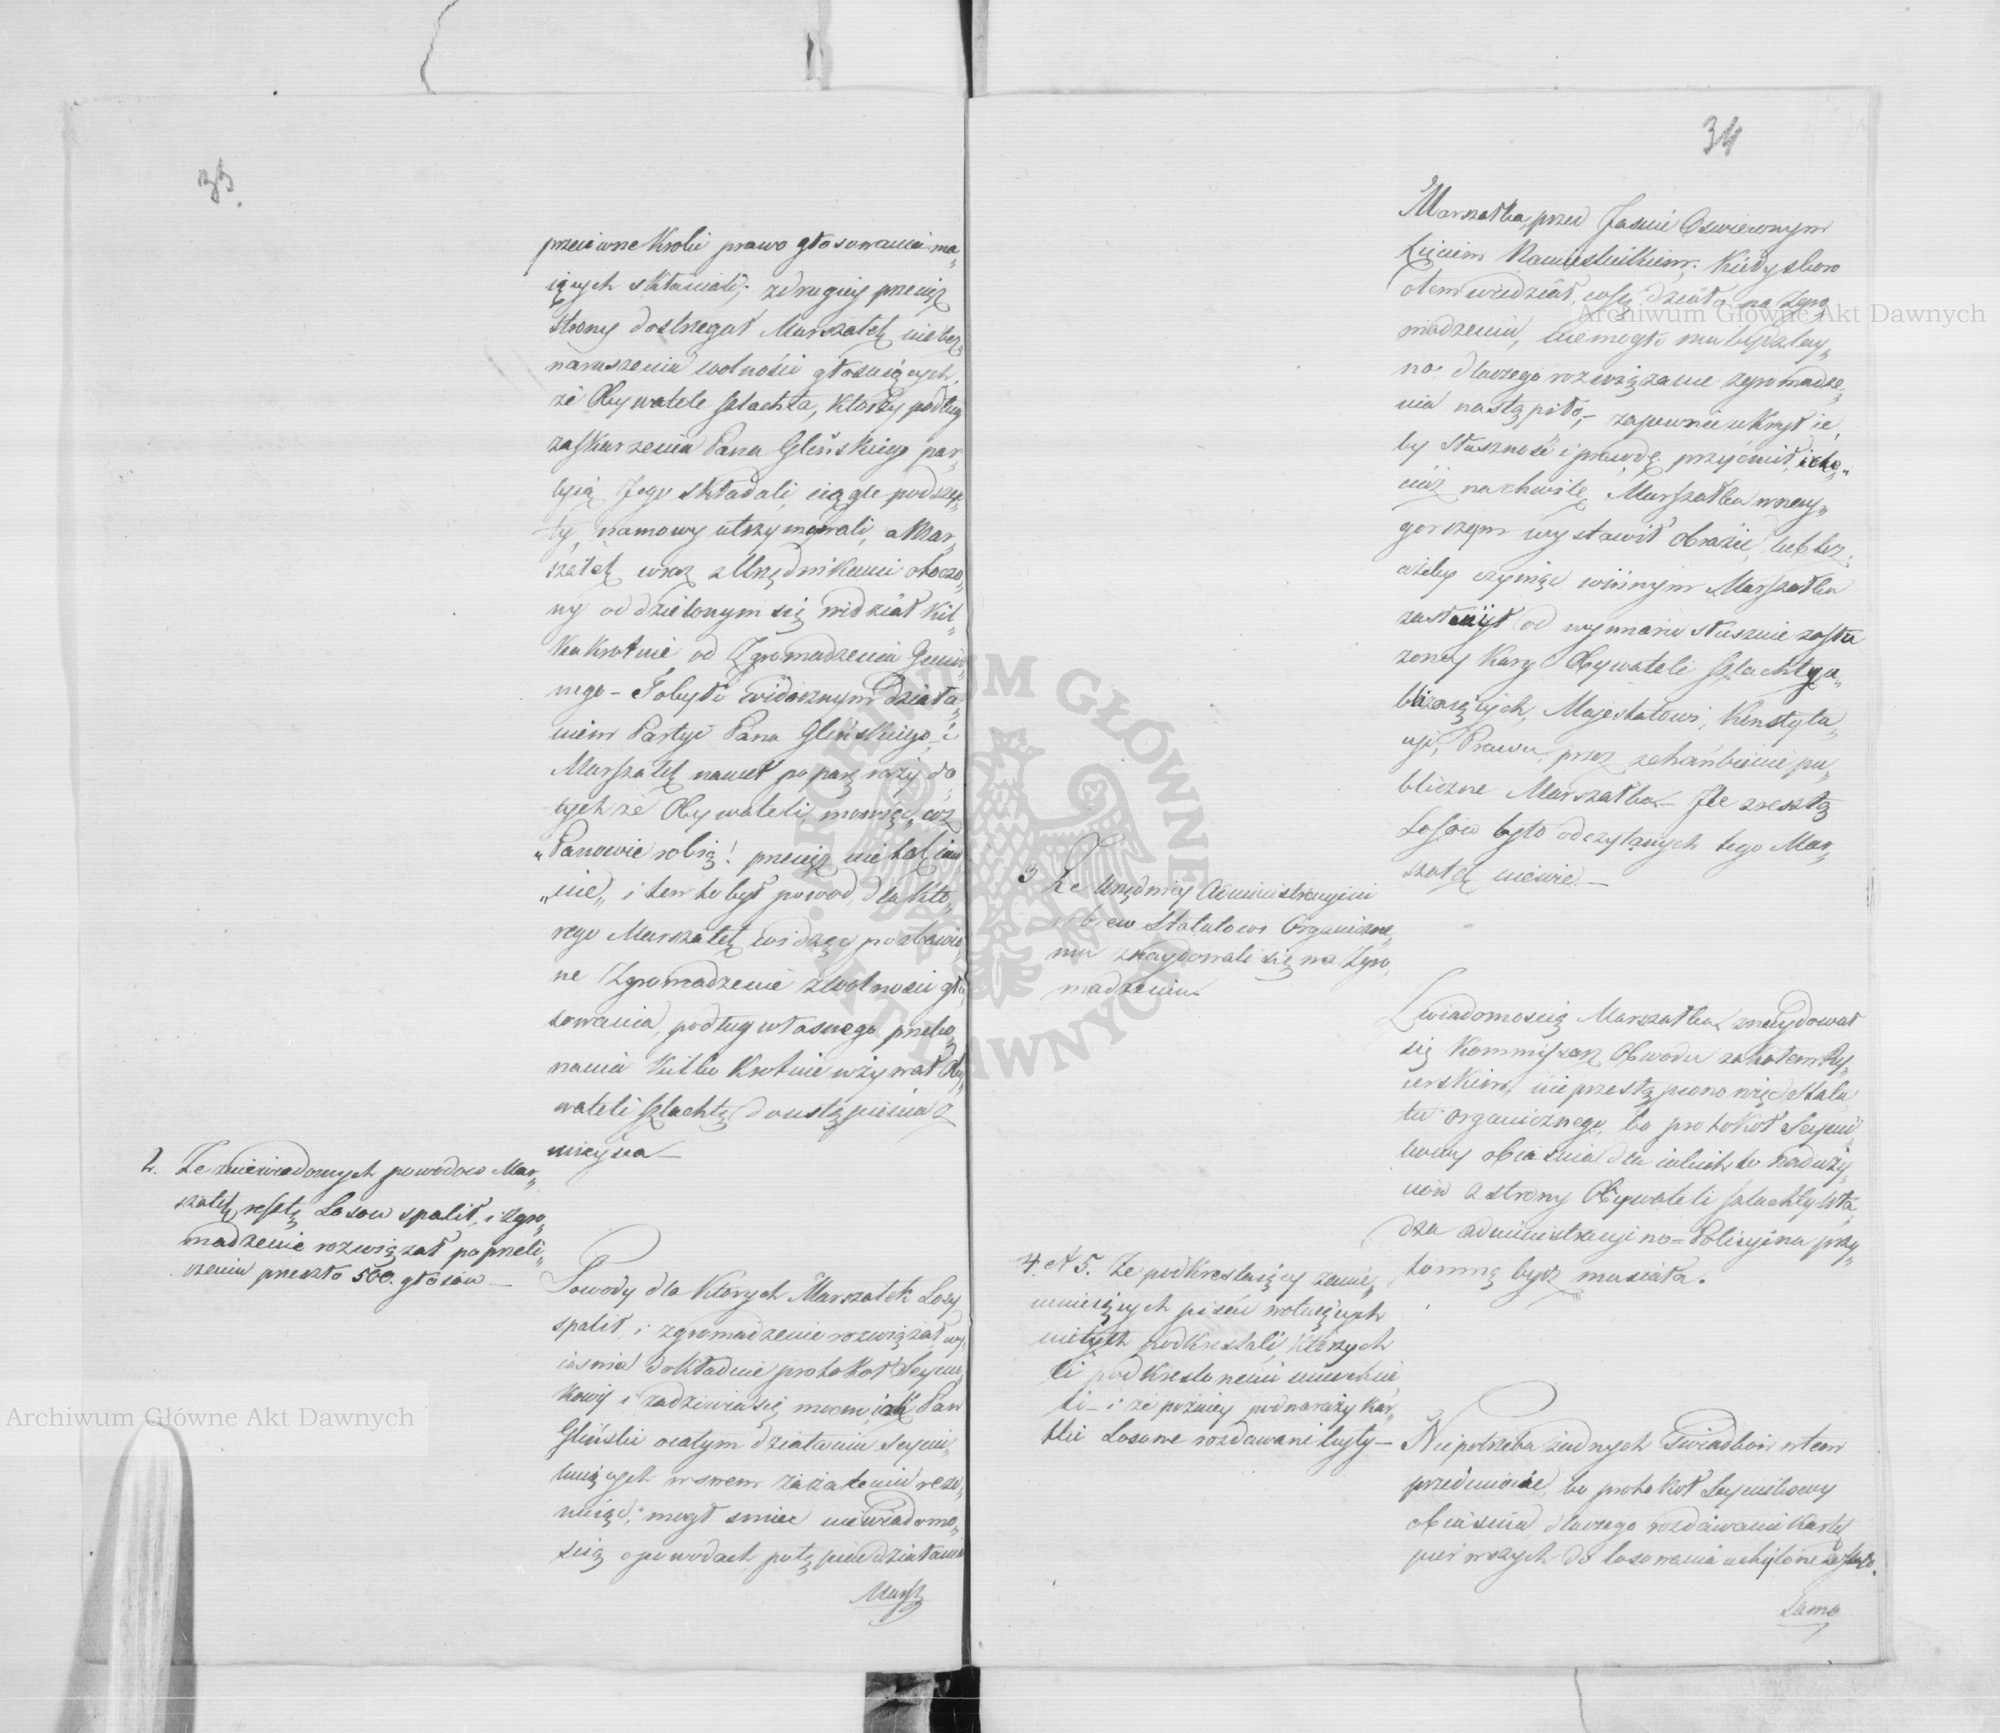 33.
przeciwne Kroki prawo głosowania ma„
iących skłaniali; z drugiey przeciż
strony dostrzegał Marszałek nie bez
naruszenia wolności głosuiących,
że Obywatele szlachta, którzy podług
zaskarzenia Pana Glińskiego par„
tyią Jego składali, ciągle podszep„
ty, namowy utrzymywali, a Mar„
szałek wraz z Urzędnikami otoczo„
ny oddzielonym się widział kil„
kakrotnie od Zgromadzenia Gmin„
nego – To było widocznym działa„
niem Partyi Pana Glińskiego, i
Marszałek nawet po parę razy do
tychże Obywateli mówiąc „cóż
„Panowie robią! przeciż nie
„nie„ i ten to był powód, dla któ„
rego Marszałek widząc pozbawio„
ne Zgromadzenie z wolności gło„
sowania, podług własnego przeko„
nania kilkokrotnie wzywał Oby„
wateli szlachtę do ustąpienia z
mieysca –
2. Że z niewiadomych powodów Mar„
szałek resztę Losow spalił, i Zgro„
madzenie rozwiązał po przeli„
czeniu przeszło 500. głosów –
Powody dla których Marszałek Losy
spalił, i zgromadzenie rozwiązał wy„
iaśnia dokładnie protokół Seymi„
kowy i zadziwia się mocno, iak Pan
Gliński o całym działaniu Seymi„
kuiących w swem zażaleniu rezo„
nuiąc, mógł smieć niewiadomo„
ścią o powodach potępić działania
Marsz
34
Marszałka, przed Jaśnie Oswieconym
Xięciem Namiestnikiem. Kiedy słowo
o tem wiedział, co się działo na Zgro„
madzeniu, nie mogło mu bydź tay„
no dlaczego rozwiązanie zgromadze„
nia nastąpiło, – zapewnie ukrył ie,
by słuszność i prawdę przyćmił, i cho„
ciaż na chwilę Marszałka w nay„
gorszym wystawił obrazie, lub też
ażeby czyniąc winnym Marszałka
zasłonił od wymiaru słusznie zasłu
żoney kary Obywateli Szlachtę u„
bliżaiących, Majestatowi, Konstytu„
cyi, Prawu, przez zchańbienie pu„
bliczne Marszałka. – Ile zresztą
Losów było odczytanych tego Mar„
szałek niewie. –
3 Że Urzędnicy Administracyini
wbrew Statutowi Organiczne„
mu znaydowali się na Zgro„
madzeniu.
Z wiadomością Marszałka znaydował
się Kommissarz Obwodu
nieprzestąpiono więc Statu
tu organicznego, bo protokół Seymi„
kowy obiaśnia dla iakich to naduży„
ciów z strony Obywateli szlachty Wła„
dza administracyino=Policyina przy„
tomną bydź musiała.
4. et 5. Że podkreślaiący zamie„
umieiących pisać wotuiących
nie tych podkreślali, których
ci podkreślonemi mieć chcie„
li – i że pózniey podwarazy kar„
tki Losowe rozdawane były –
Niepotrzeba żadnych świadków w tem
przedmiocie, bo protokół Seymikowy
obiaśnia, dlaczego rozdawanie kartek
pierwszych do losowania uchylone zostało.
Samo
Archiwum Główne Akt Dawnych
Archiwum Główne Akt Dawnych
ARCHIWUM GŁÓWNE AKT DAWNYCH